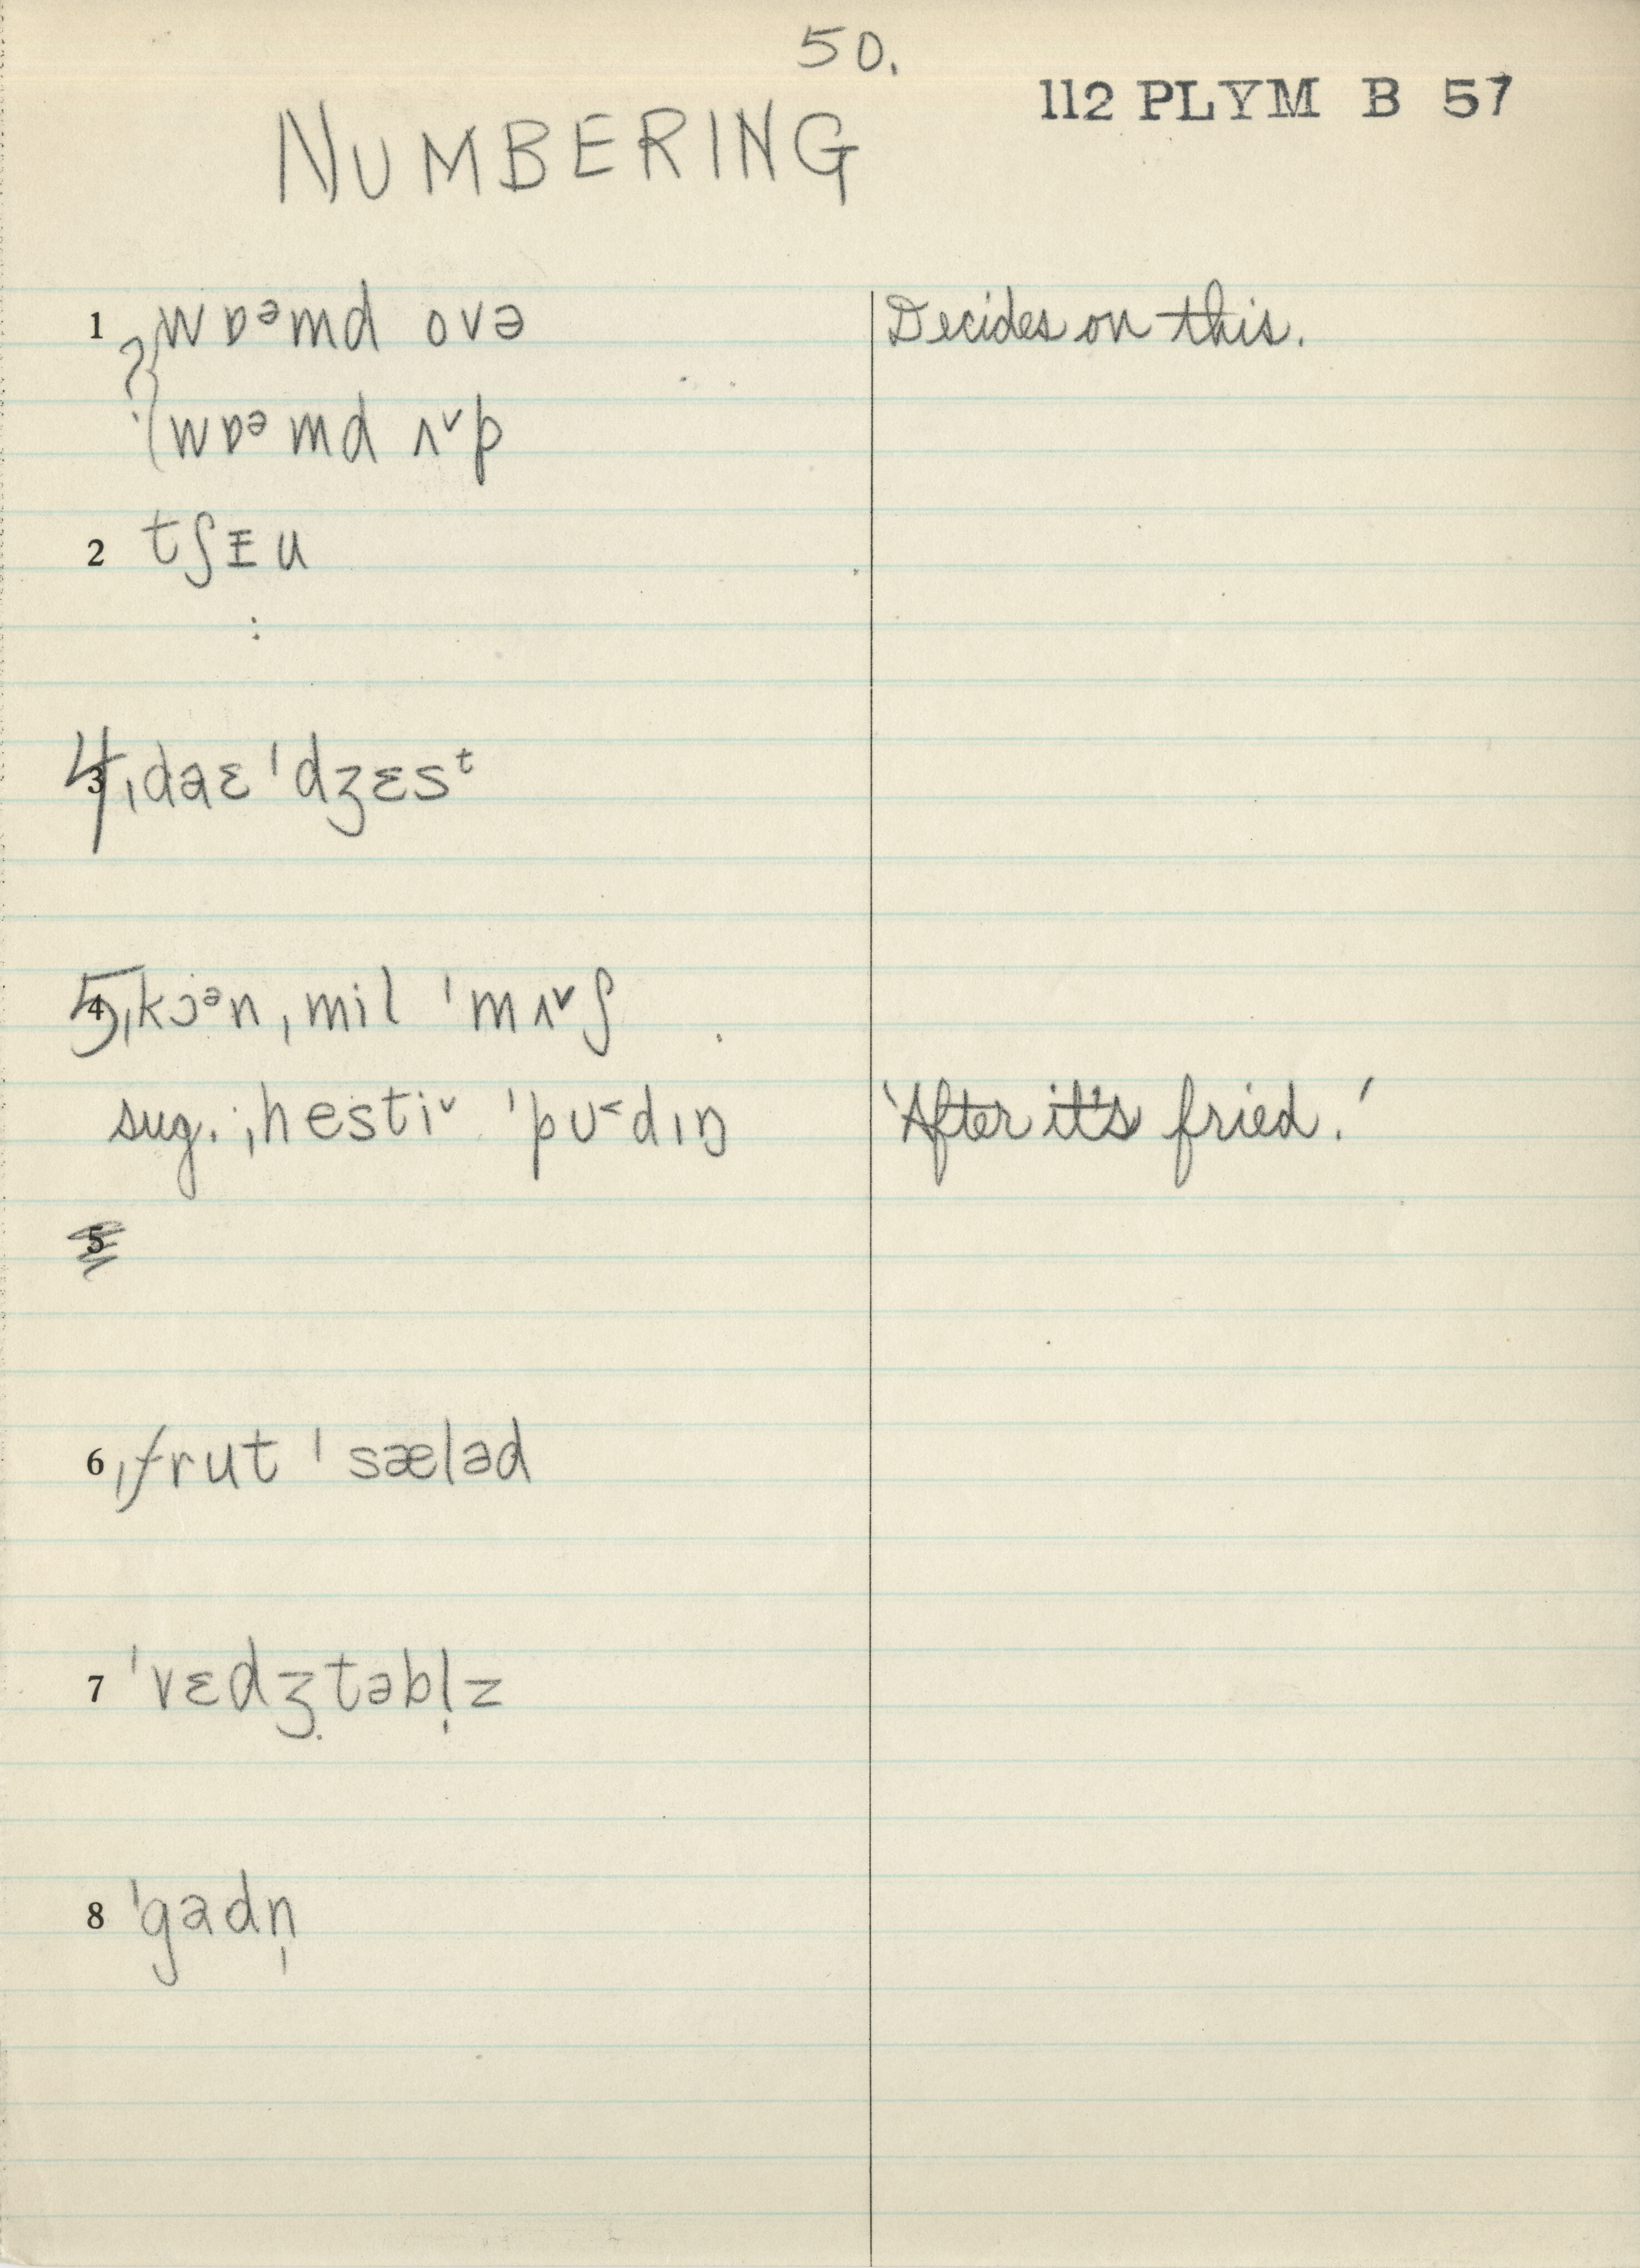 50.
112 PLYM B 57
NUMBERING
1 ?{wɒᵊmd ovə Decides on this.
{wɒᵊmd ʌ˅p
2 tʃɪu
:
4 ˌdaɛ ˈdʒɛsᵗ
5 ˌkɔᵊn ˌmil ˈmʌ˅ʃ
sug. ˌhesti˅ ˈpʊ˂dɪŋ 'After it's fried.'
5
6 ˌfrut ˈsæləd
7 ˈvɛdʒ̣təbl̩z
8 ˈgadn̩